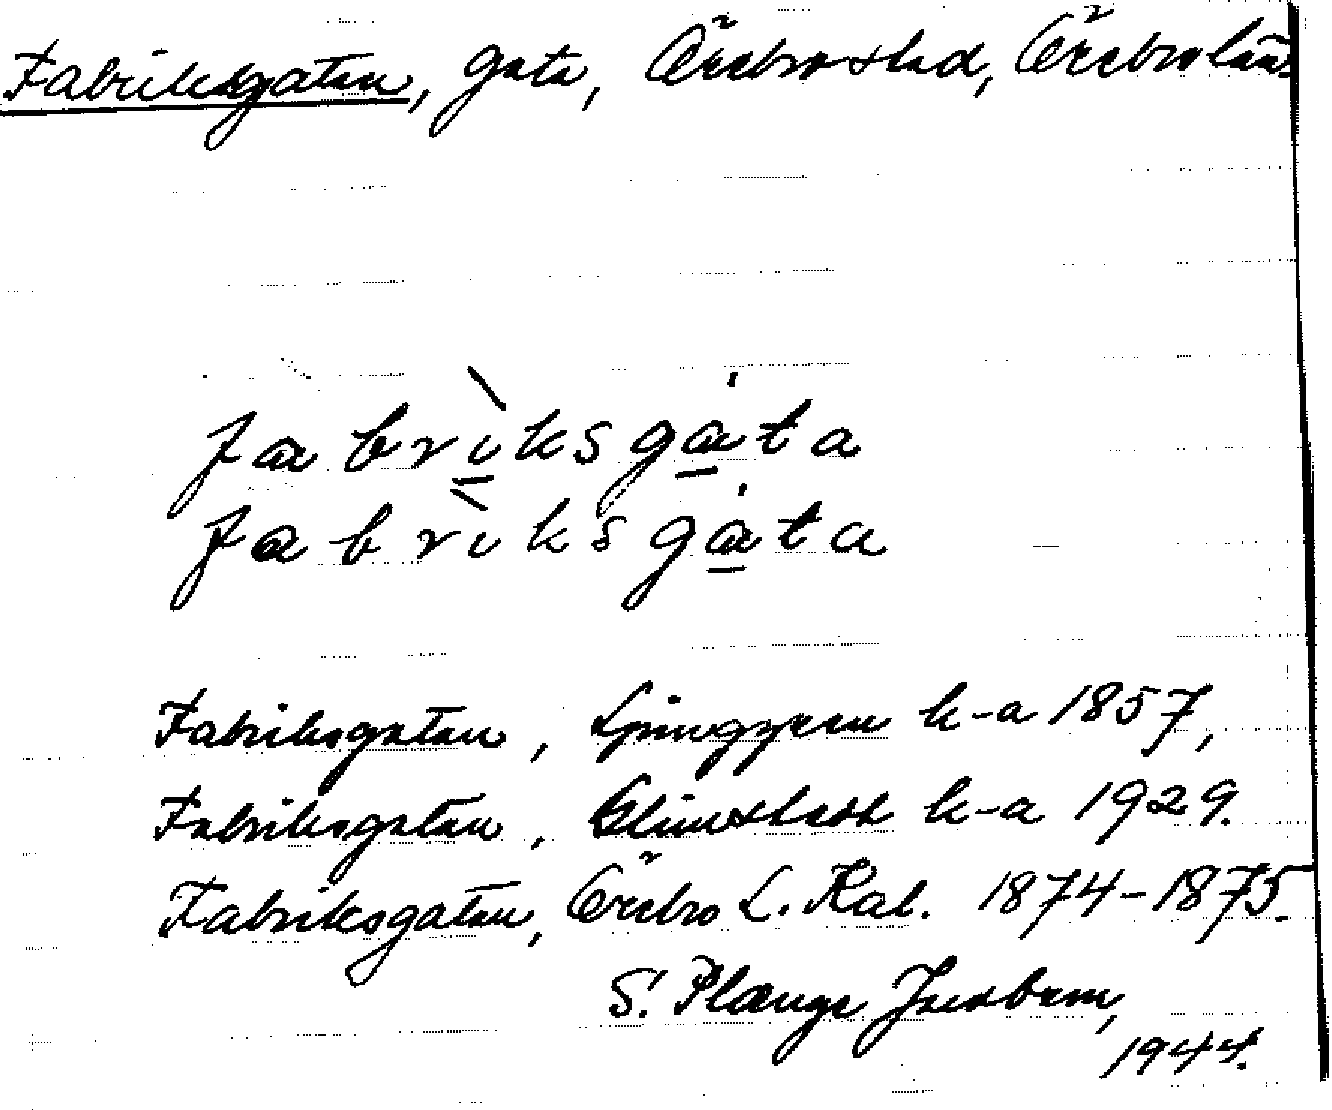 Fabriksgatan, gata, Örebro stad, Örebro län.
fabrìksgáta
fabrìksgáta
Fabriksgatan, Ljunggren k-a 1857,
Fabriksgatan, k-a 1929.
Fabriksgatan, Örebro L. Kal. 1874-1875.
S. Plænge Jacobson,
1944.